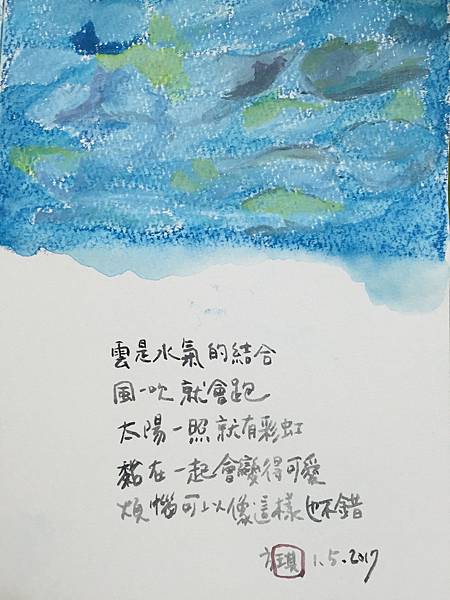 雲是水氣的結合
風一吹就會跑
太陽一照就有彩虹
黏在一起會變得可愛
煩惱可以像這樣也不錯
琪 1.5.2017